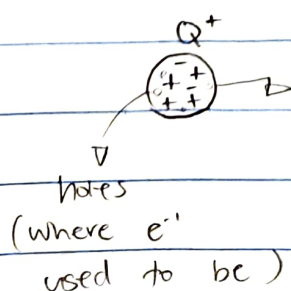 Q⁺
- + + - + +
holes
(where e⁻¹
used to be)